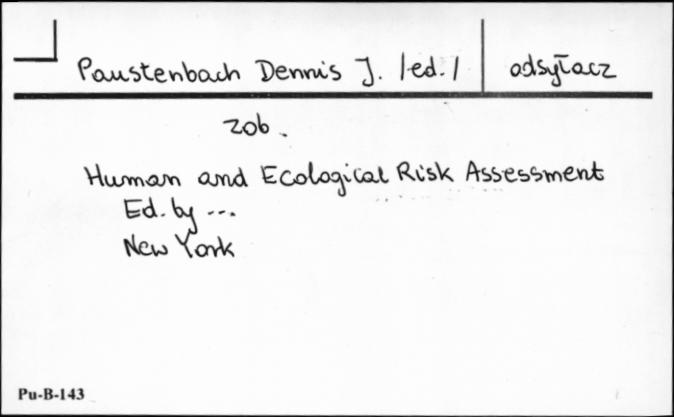 Paustenbach Dennis J. /ed./ odsyłacz
zob.
Human and Ecological Risk Assessment
Ed. by ...
New York
Pu-B-143